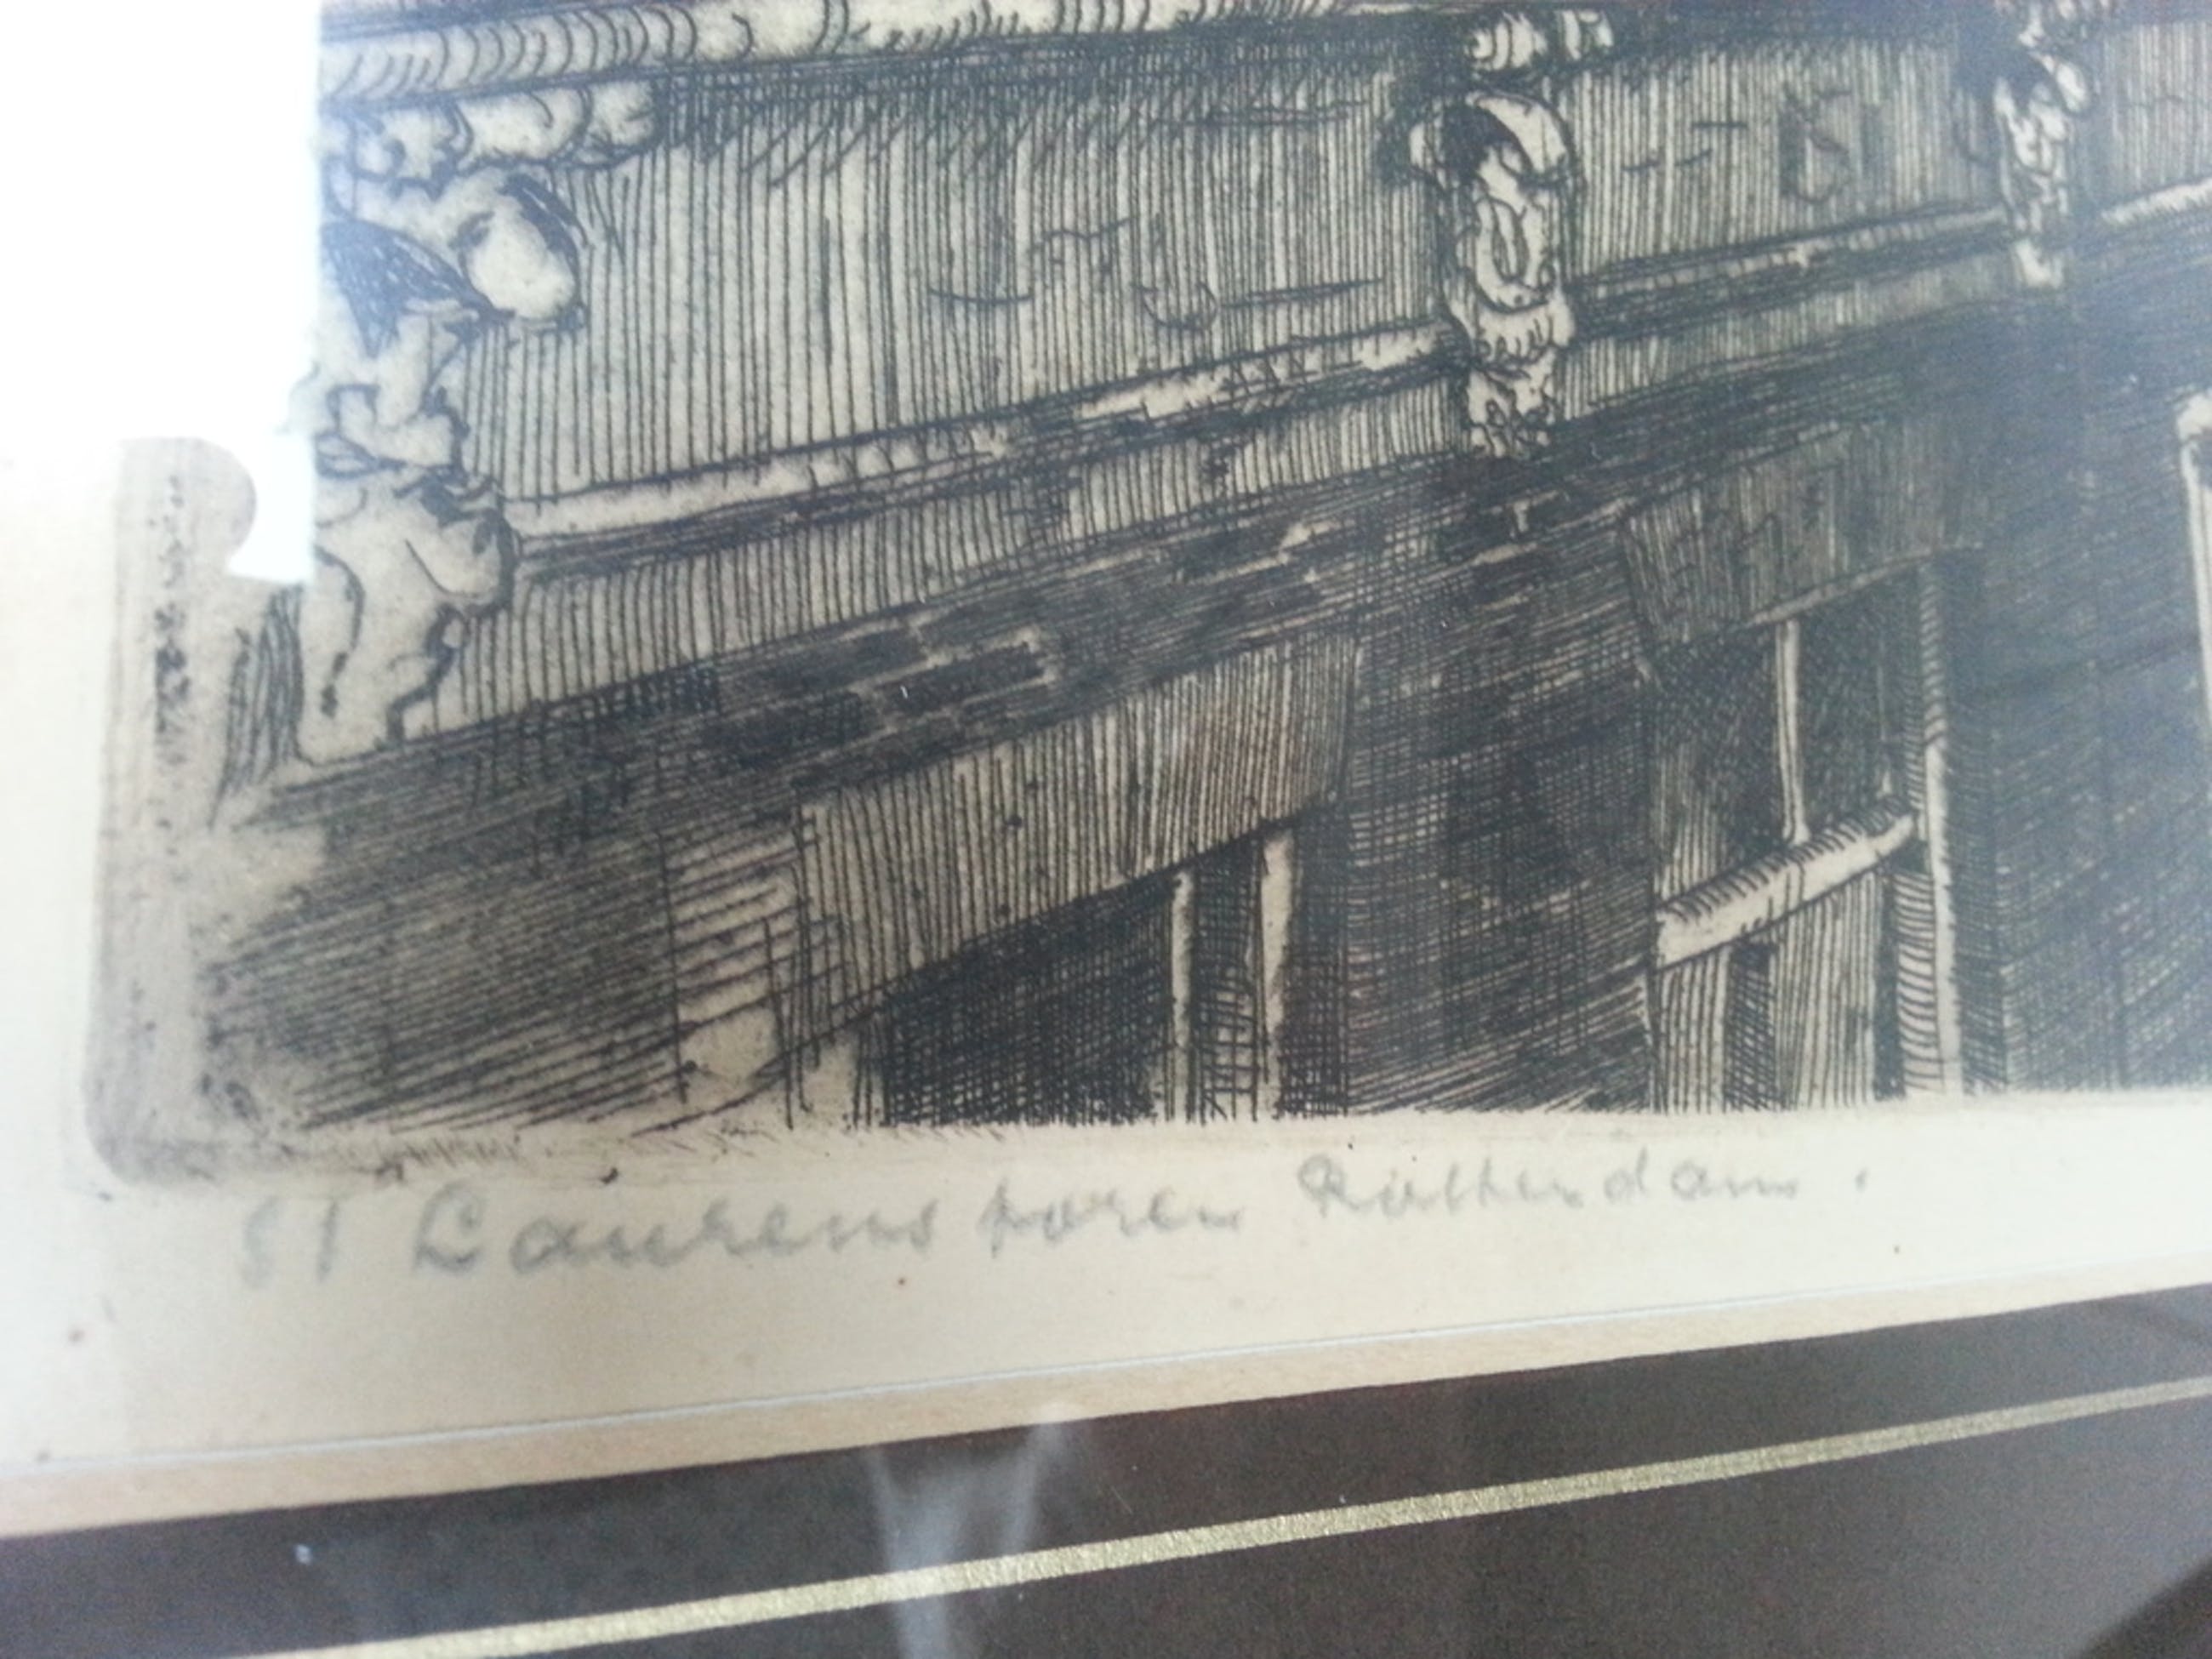 St Laurens toren Rotterdam.